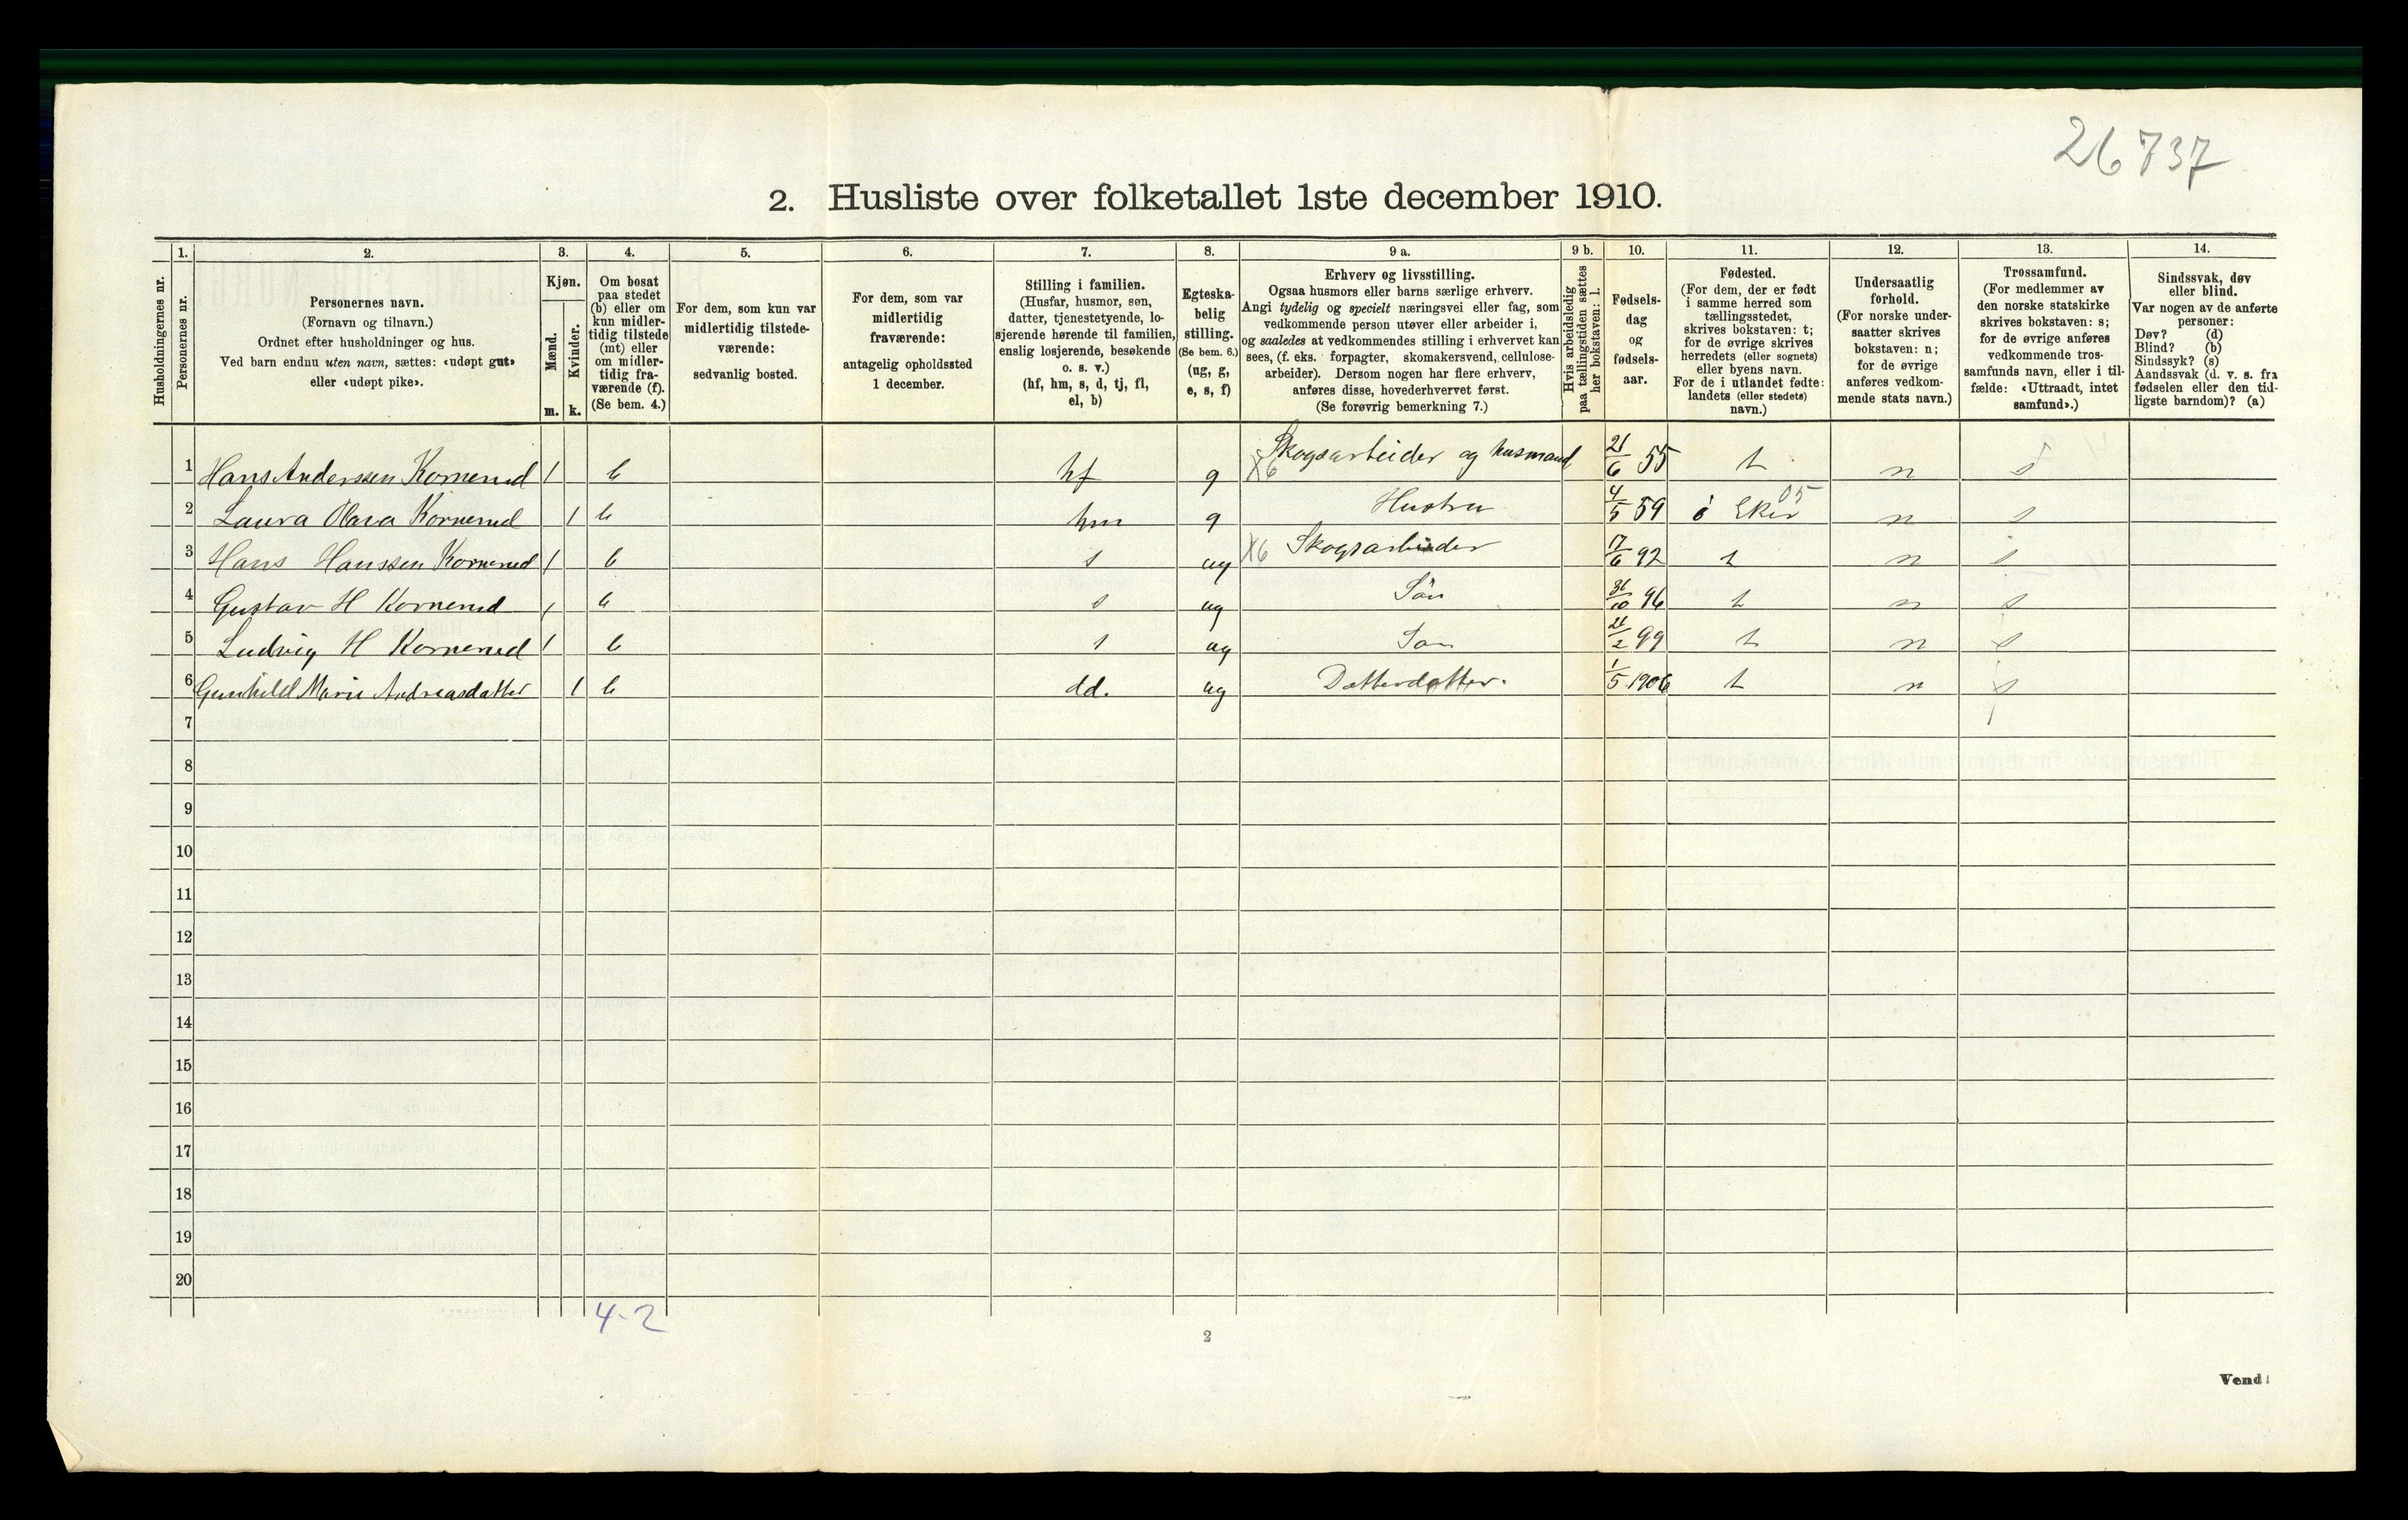 26737
2. Husliste over folketallet 1ste december 1910.
Husholdningernes nr.
1. Personernes nr.
2.
Personernes navn.
(Fornavn og tilnavn.)
Ordnet efter husholdninger og hus.
Ved barn endnu uten navn, sættes: «udøpt gut»
eller «udøpt pike».
3.
Kjøn.
Mænd. m.
Kvinder. k.
4.
Om bosat
paa stedet
(b) eller om
kun midler-
tidig tilstede
(mt) eller
om midler-
tidig fra-
værende (f).
(Se bem. 4.)
5.
For dem, som kun var
midlertidig tilstede-
værende:
sedvanlig bosted.
6.
For dem, som var
midlertidig
fraværende:
antagelig opholdssted
1 december.
7.
Stilling i familien.
(Husfar, husmor, søn,
datter, tjenestetyende, lo-
sjerende hørende til familien,
enslig losjerende, besøkende
o. s. v.)
(hf, hm, s, d, tj, fl,
el, b)
8.
Egteska-
belig
stilling.
(Se bem. 6.)
(ug, g,
e, s, f)
9 a.
Erhverv og livsstilling.
Ogsaa husmors eller barns særlige erhverv.
Angi tydelig og specielt næringsvei eller fag, som
vedkommende person utøver eller arbeider i,
og saaledes at vedkommendes stilling i erhvervet kan
sees, (f. eks. forpagter, skomakersvend, cellulose-
arbeider). Dersom nogen har flere erhverv,
anføres disse, hovederhvervet først.
(Se forøvrig bemerkning 7.)
9 b.
Hvis arbeidsledig
paa tællingstiden sættes
her bokstaven: l.
10.
Fødsels-
dag
og
fødsels-
aar.
11.
Fødested.
(For dem, der er født
i samme herred som
tællingsstedet,
skrives bokstaven: t;
for de øvrige skrives
herredets (eller sognets)
eller byens navn.
For de i utlandet fødte:
landets (eller stedets)
navn.)
12.
Undersaatlig
forhold.
(For norske under-
saatter skrives
bokstaven: n;
for de øvrige
anføres vedkom-
mende stats navn.)
13.
Trossamfund.
(For medlemmer av
den norske statskirke
skrives bokstaven: s;
for de øvrige anføres
vedkommende tros-
samfunds navn, eller i til-
fælde: «Uttraadt, intet
samfund».)
14.
Sindssvak, døv
eller blind.
Var nogen av de anførte
personer:
Døv? (d)
Blind? (b)
Sindssyk? (s)
Aandssvak (d. v. s. fra
fødselen eller den tid-
ligste barndom)? (a)
1 Hans Anderssen Kornerud 1 b hf g X6 Skogsarbeider og husmand 21/6 55 t n s
2 Laura Olava Kornerud 1 b hm g Hustru 4/5 59 ö Eker 05 n s
3 Hans Hanssen Kornerud 1 b s ug X6 Skogsarbeider 17/6 92 t n s
4 Gustav H Kornerud 1 b s ug Sön 31/10 96 t n s
5 Ludvig H Kornerud 1 b s ug Sön 21/2 99 t n s
6 Gunhild Marie Andreasdatter 1 b dd. ug Datterdatter. 1/5 1906 t n s
7
8
9
10
11
12
13
14
15
16
17
18
19
20
4-2
2
Vend!